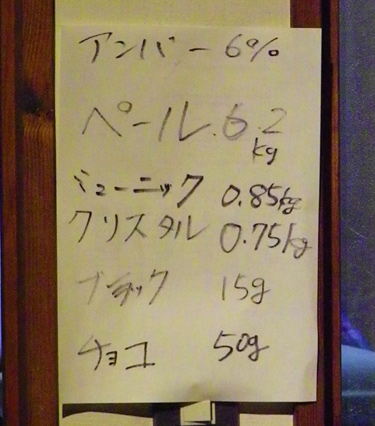 アンバー 6%
ペール 6.2
kg
ミューニック 0.85kg
クリスタル 0.75kg
ブラック 15g
チョコ 50g